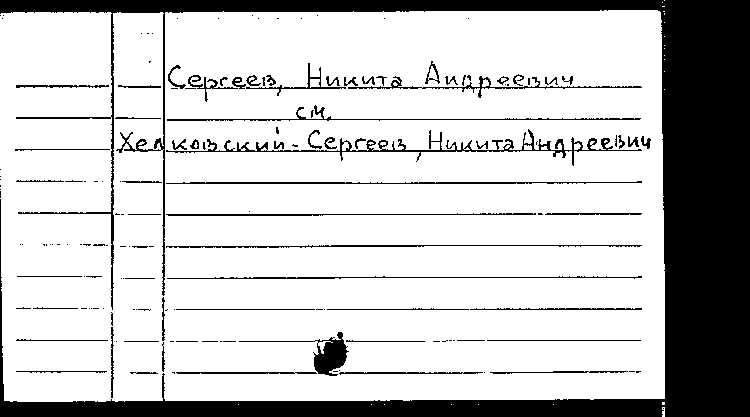 Сергеев, Никита Андреевич
см.
Хелковский-Сергеев, Никита Андреевич